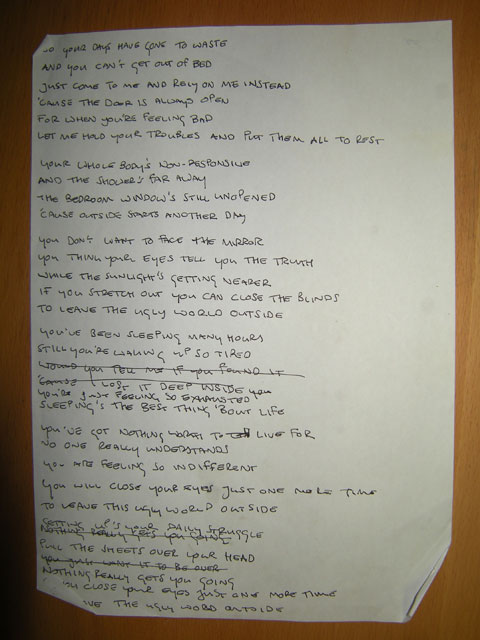 SO YOUR DAYS HAVE GONE TO WASTE
AND YOU CAN'T GET OUT OF BED
JUST COME TO ME AND RELY ON ME INSTEAD
'CAUSE THE DOOR IS ALWAYS OPEN
FOR WHEN YOU'RE FEELING BAD
LET ME HOLD YOUR TROUBLES AND PUT THEM ALL TO REST
YOUR WHOLE BODY'S NON-RESPONSIVE
AND THE SHOWER'S FAR AWAY
THE BEDROOM WINDOW'S STILL UNOPENED
'CAUSE OUTSIDE STARTS ANOTHER DAY
YOU DON'T WANT TO FACE THE MIRROR
YOU THINK YOUR EYES TELL YOU THE TRUTH
WHILE THE SUNLIGHT'S GETTING NEARER
IF YOU STRETCH OUT YOU CAN CLOSE THE BLINDS
TO LEAVE THE UGLY WORLD OUTSIDE
YOU'VE BEEN SLEEPING MANY HOURS
STILL YOU'RE WAKING UP SO TIRED
WOULD YOU TELL ME IF YOU FOUND IT
'CAUSE I LOST IT DEEP INSIDE YOU
YOU'RE JUST FEELING SO EXHAUSTED
SLEEPING'S THE BEST THING 'BOUT LIFE
YOU'VE GOT NOTHING WORTH TO LIVE FOR
NO ONE REALLY UNDERSTANDS
YOU ARE FEELING SO INDIFFERENT
YOU WILL CLOSE YOUR EYES JUST ONE MORE TIME
TO LEAVE THIS UGLY WORLD OUTSIDE
GETTING UP'S YOUR DAILY STRUGGLE
NOTHING REALLY GETS YOU GOING
PULL THE SHEETS OVER YOUR HEAD
YOU JUST WANT IT TO BE OVER
NOTHING REALLY GETS YOU GOING
CLOSE YOUR EYES JUST ONE MORE TIME
THE UGLY WORLD OUTSIDE